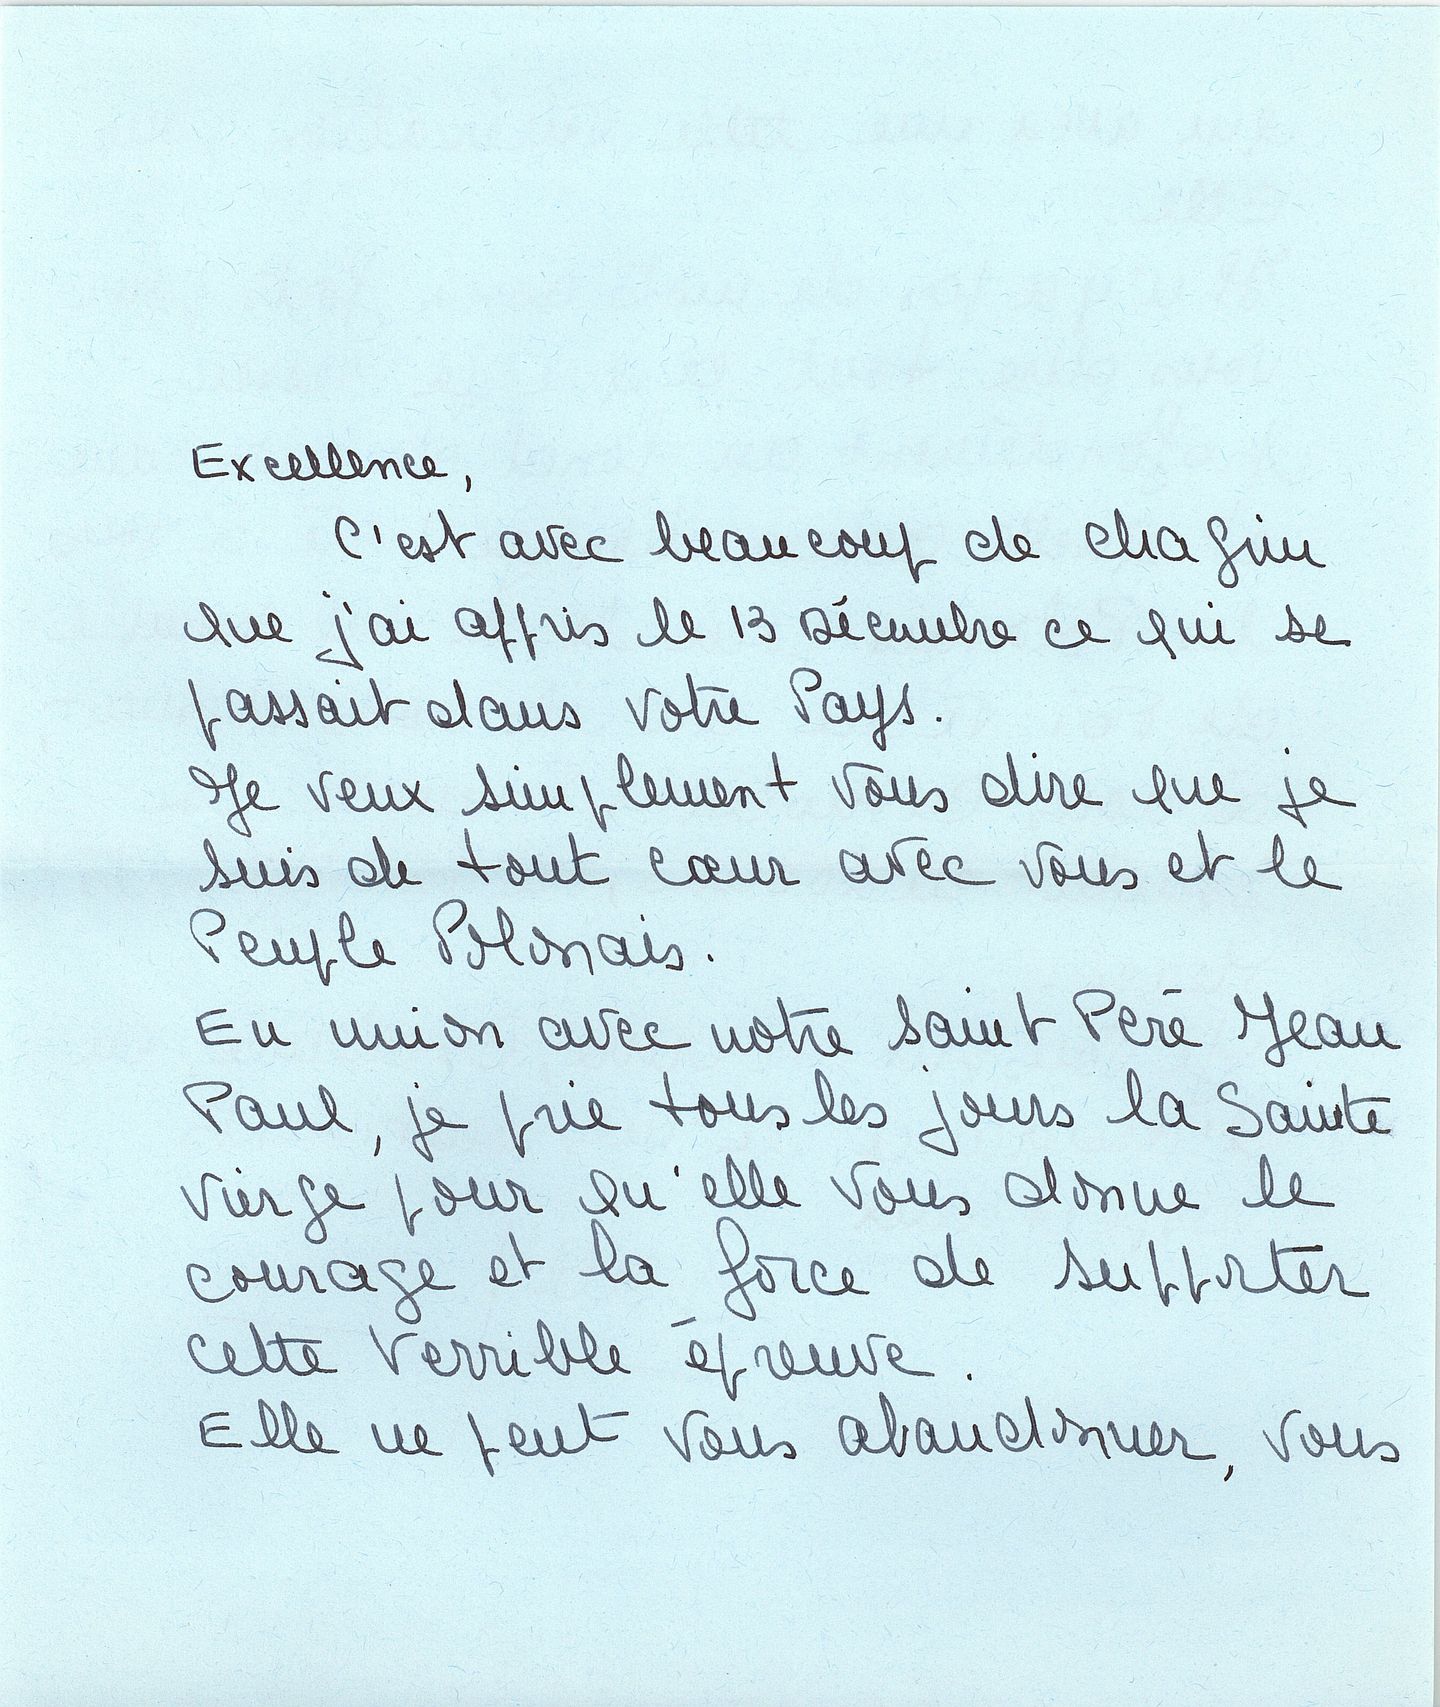 Excellence,
C'est avec beaucoup de chagrin
que j'ai appris le 13 Décembre ce qui se
passait dans votre Pays.
Je veux simplement vous dire que je
suis de tout cœur avec vous et le
Peuple Polonais.
En union avec notre Saint Père Jean
Paul, je prie tous les jours la Sainte
Vierge pour qu'elle vous donne le
courage et la force de supporter
cette terrible épreuve.
Elle ne peut vous abandonner, vous